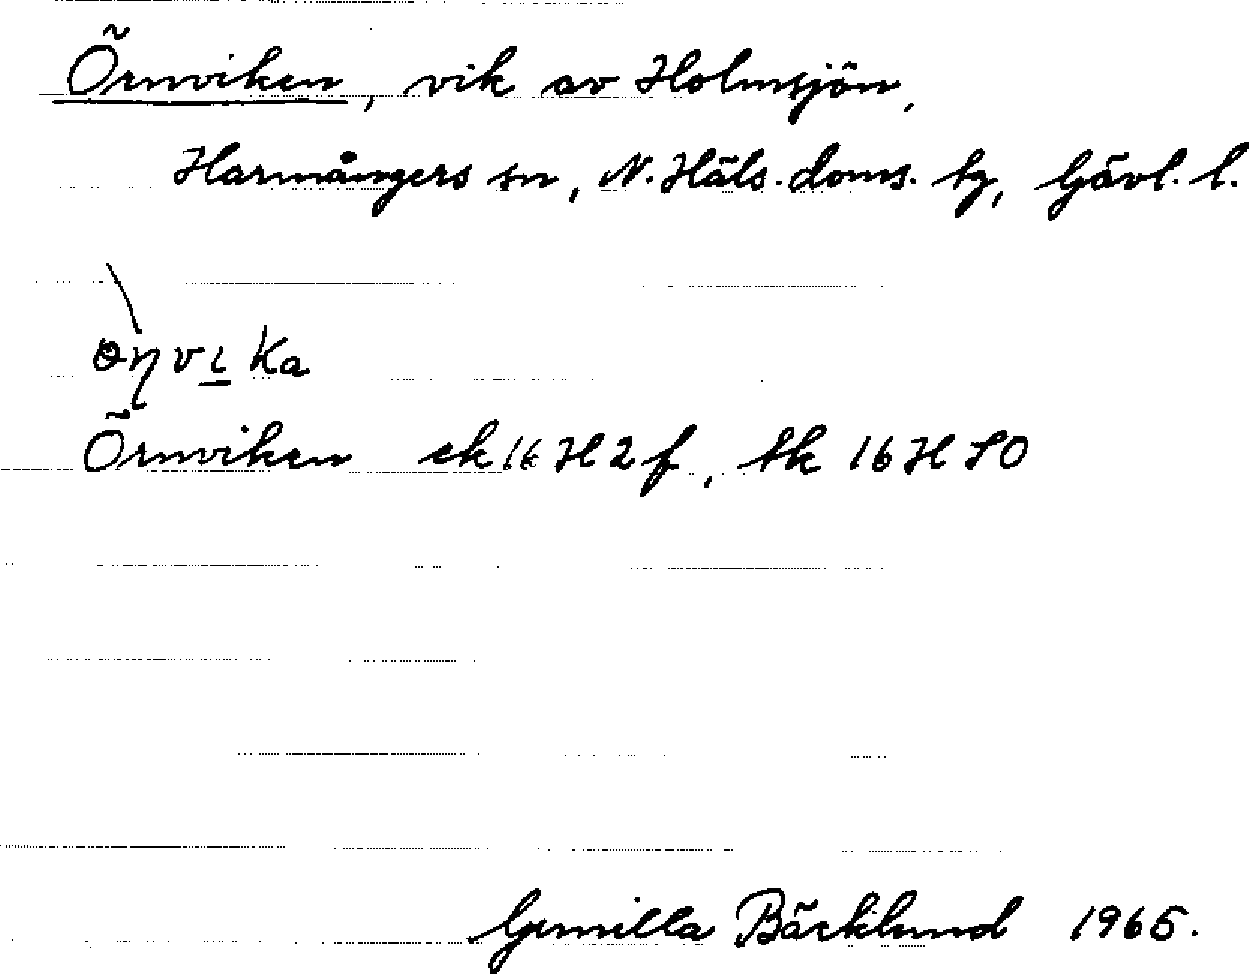 Örnviken, vik av Holmsjön,
Harmångers sn, N. Häls. doms. tg, Gävl. l.
Örnviken ek 16 H 2 f, tk 16 H SO
Gunilla Bäcklund 1965.